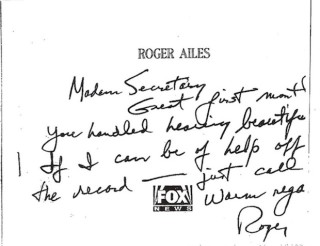 ROGER AILES
Madam Secretary
Great first mont
You handled hearing beautifu
If I can be of help off
the record — just call
Warm rega
Roger
FOX
NEWS